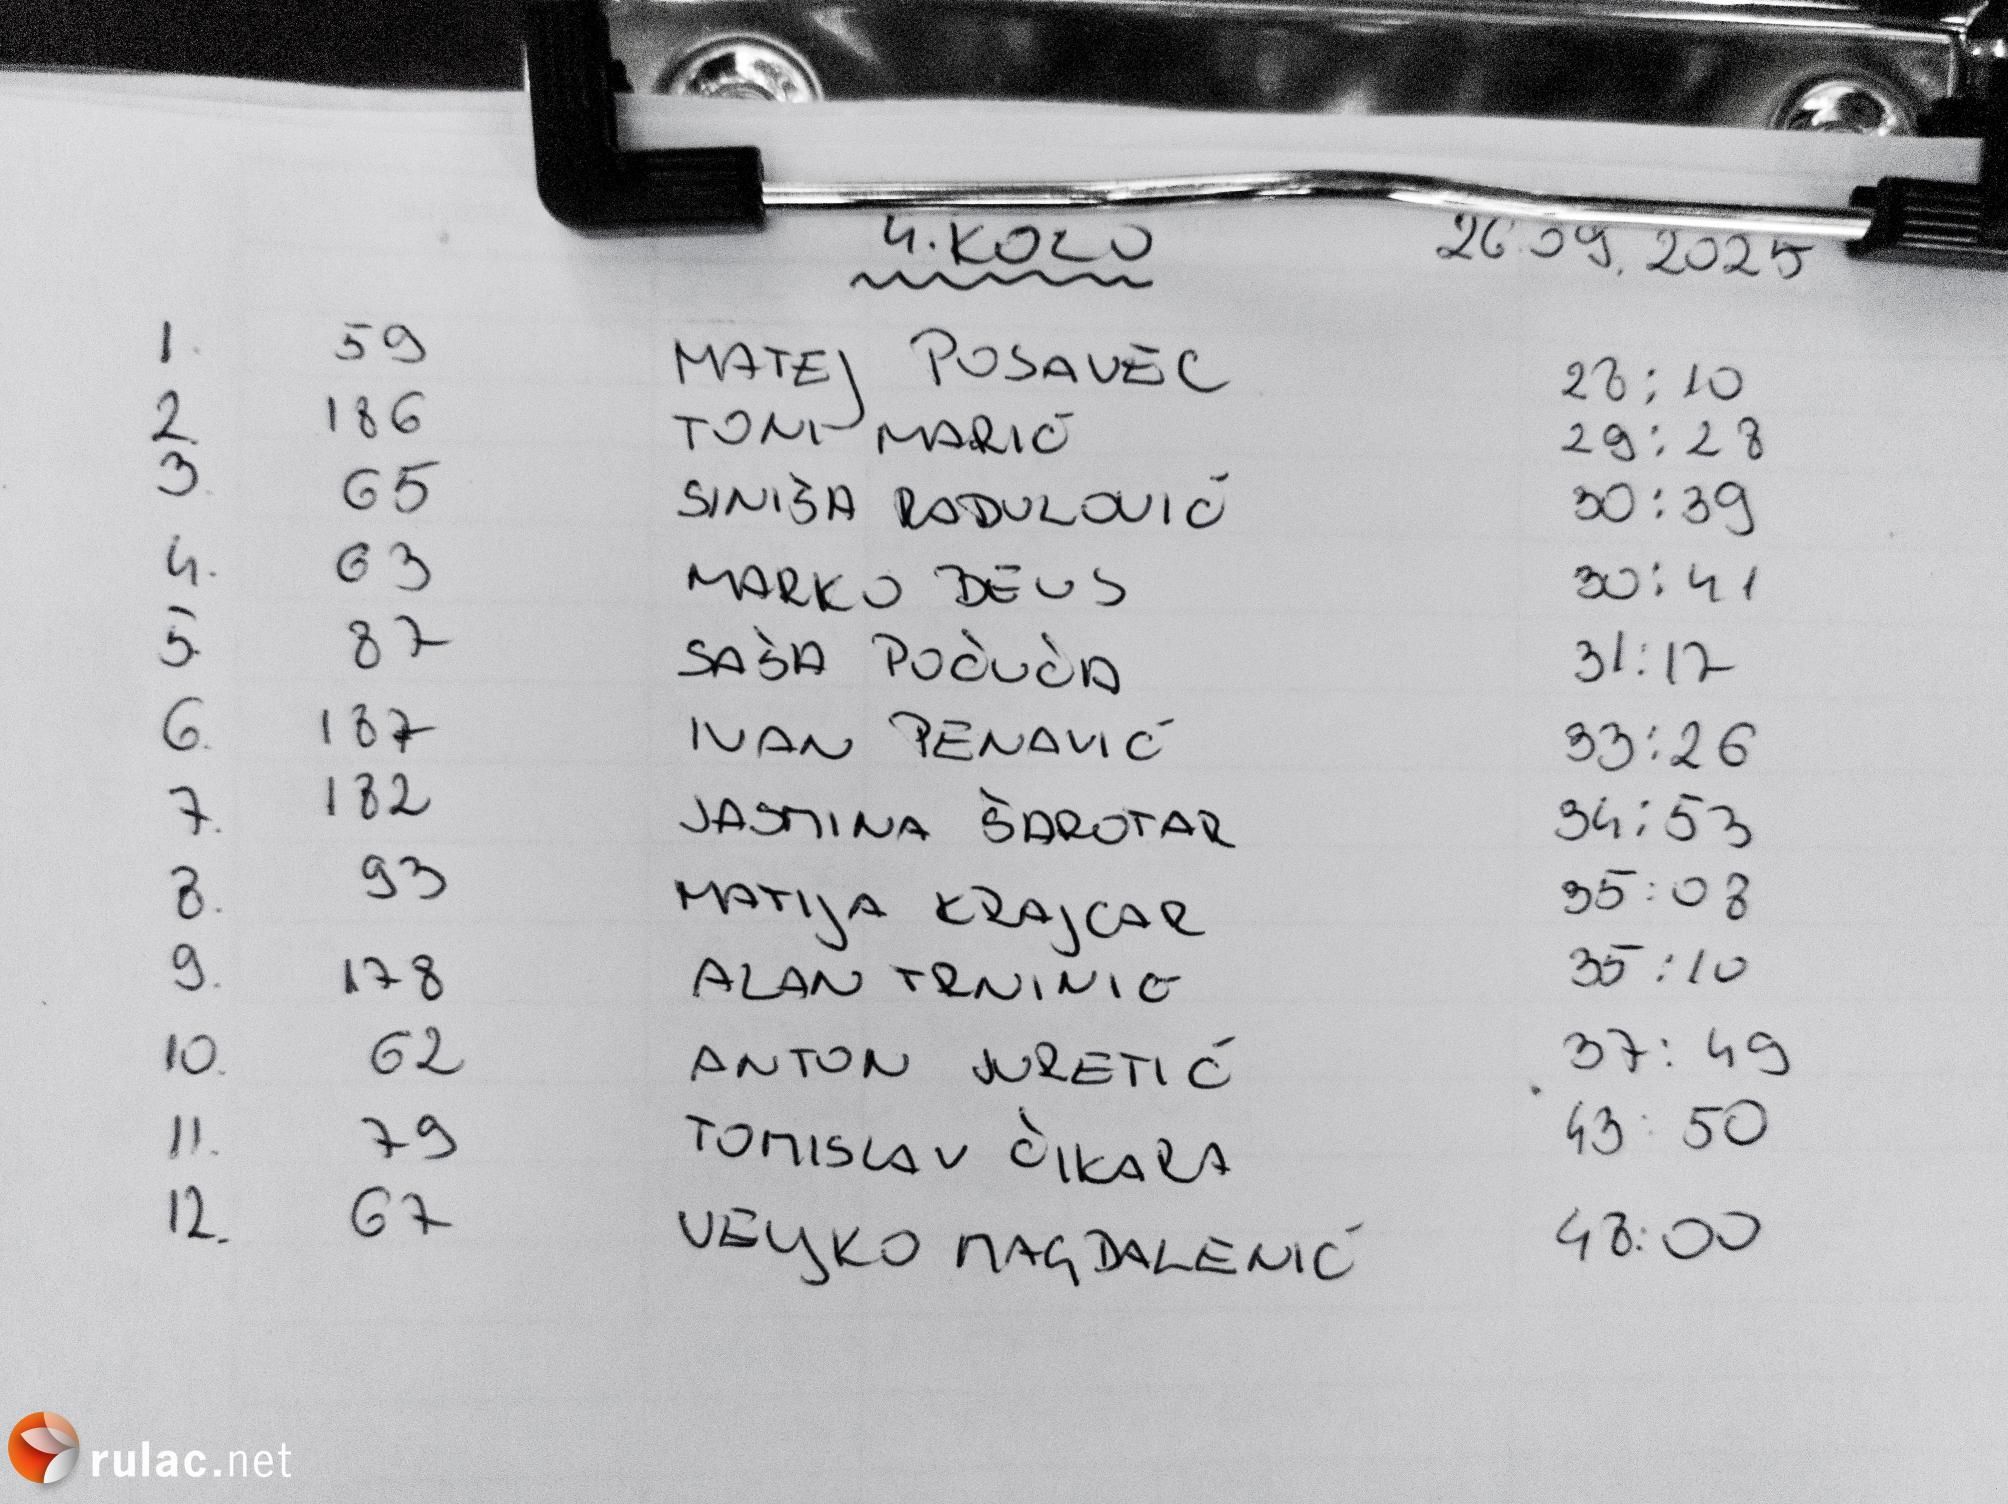 4. KOLO 26.09.2025
1. 59 MATEJ POSAVEC 28:10
2. 186 TONI MARIĆ 29:28
3. 65 SINIŠA RADULOVIĆ 30:39
4. 63 MARKO BEUS 30:41
5. 87 SAŠA POČUČA 31:17
6. 187 IVAN PENAVIĆ 33:26
7. 182 JASMINA ŠAROTAR 34:53
8. 93 MATIJA KRAJCAR 35:08
9. 178 ALAN TRNINIĆ 35:10
10. 62 ANTON JURETIĆ 37:49
11. 79 TOMISLAV ČIKARA 43:50
12. 67 VELJKO MAGDALENIĆ 48:00
rulac.net